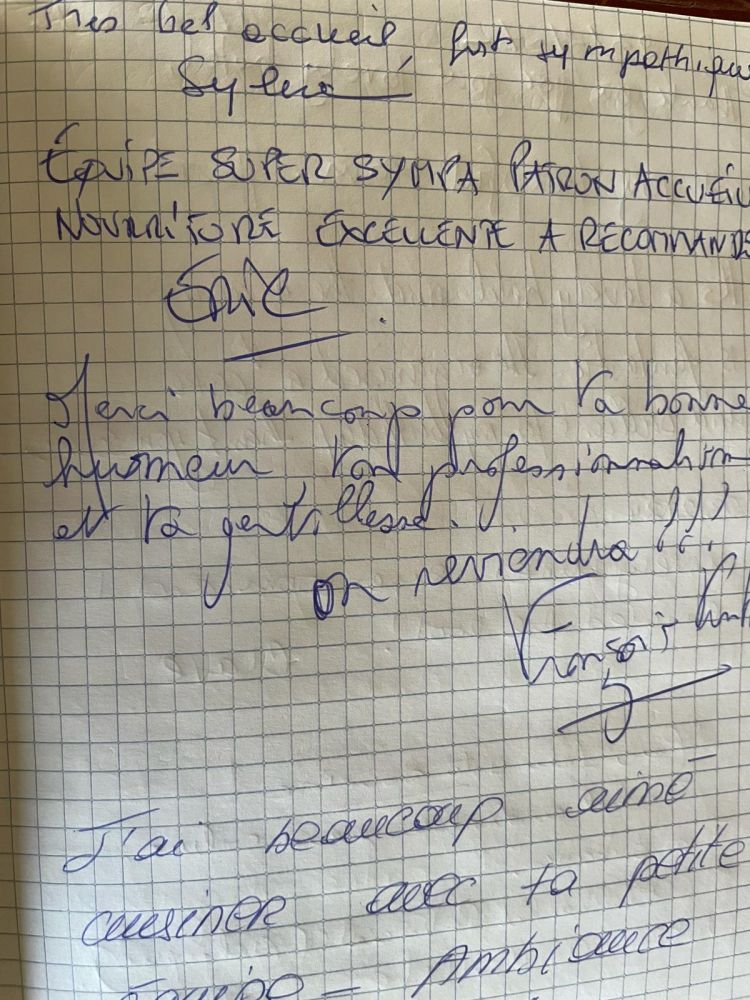 Très bel accueil, fort sympathique
Sylvie
ÉQUIPE SUPER SYMPA PATRON ACCUEIL
NOURRITURE EXCELLENTE A RECOMMANDE
Merci beaucoup pour ta bonne
humeur, ton professionnalism
et ta gentillesse.
on reviendra !!!
François
J'ai beaucoup aimé
cuisiner avec ta petite
Équipe - Ambiance